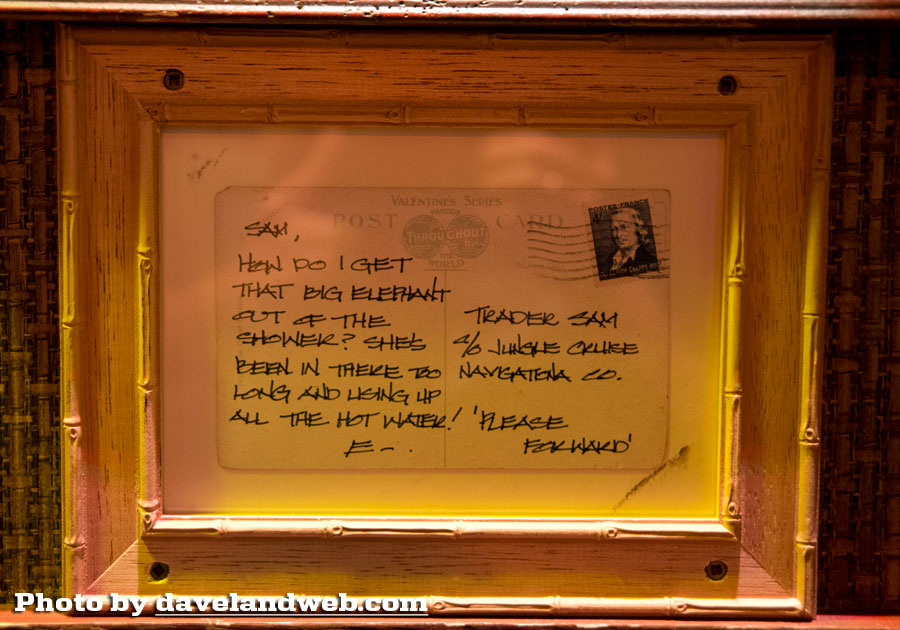 VALENTINE'S SERIES
POST CARD
FAMOUS
THROUGHOUT
THE
WORLD
POSTES FRANCE
SAM,
HOW DO I GET
THAT BIG ELEPHANT
OUT OF THE
SHOWER? SHE'S
BEEN IN THERE TOO
LONG AND USING UP
ALL THE HOT WATER!
E–.
TRADER SAM
c/o JUNGLE CRUISE
NAVIGATIONA CO.
'PLEASE
FORWARD'
Photo by davelandweb.com